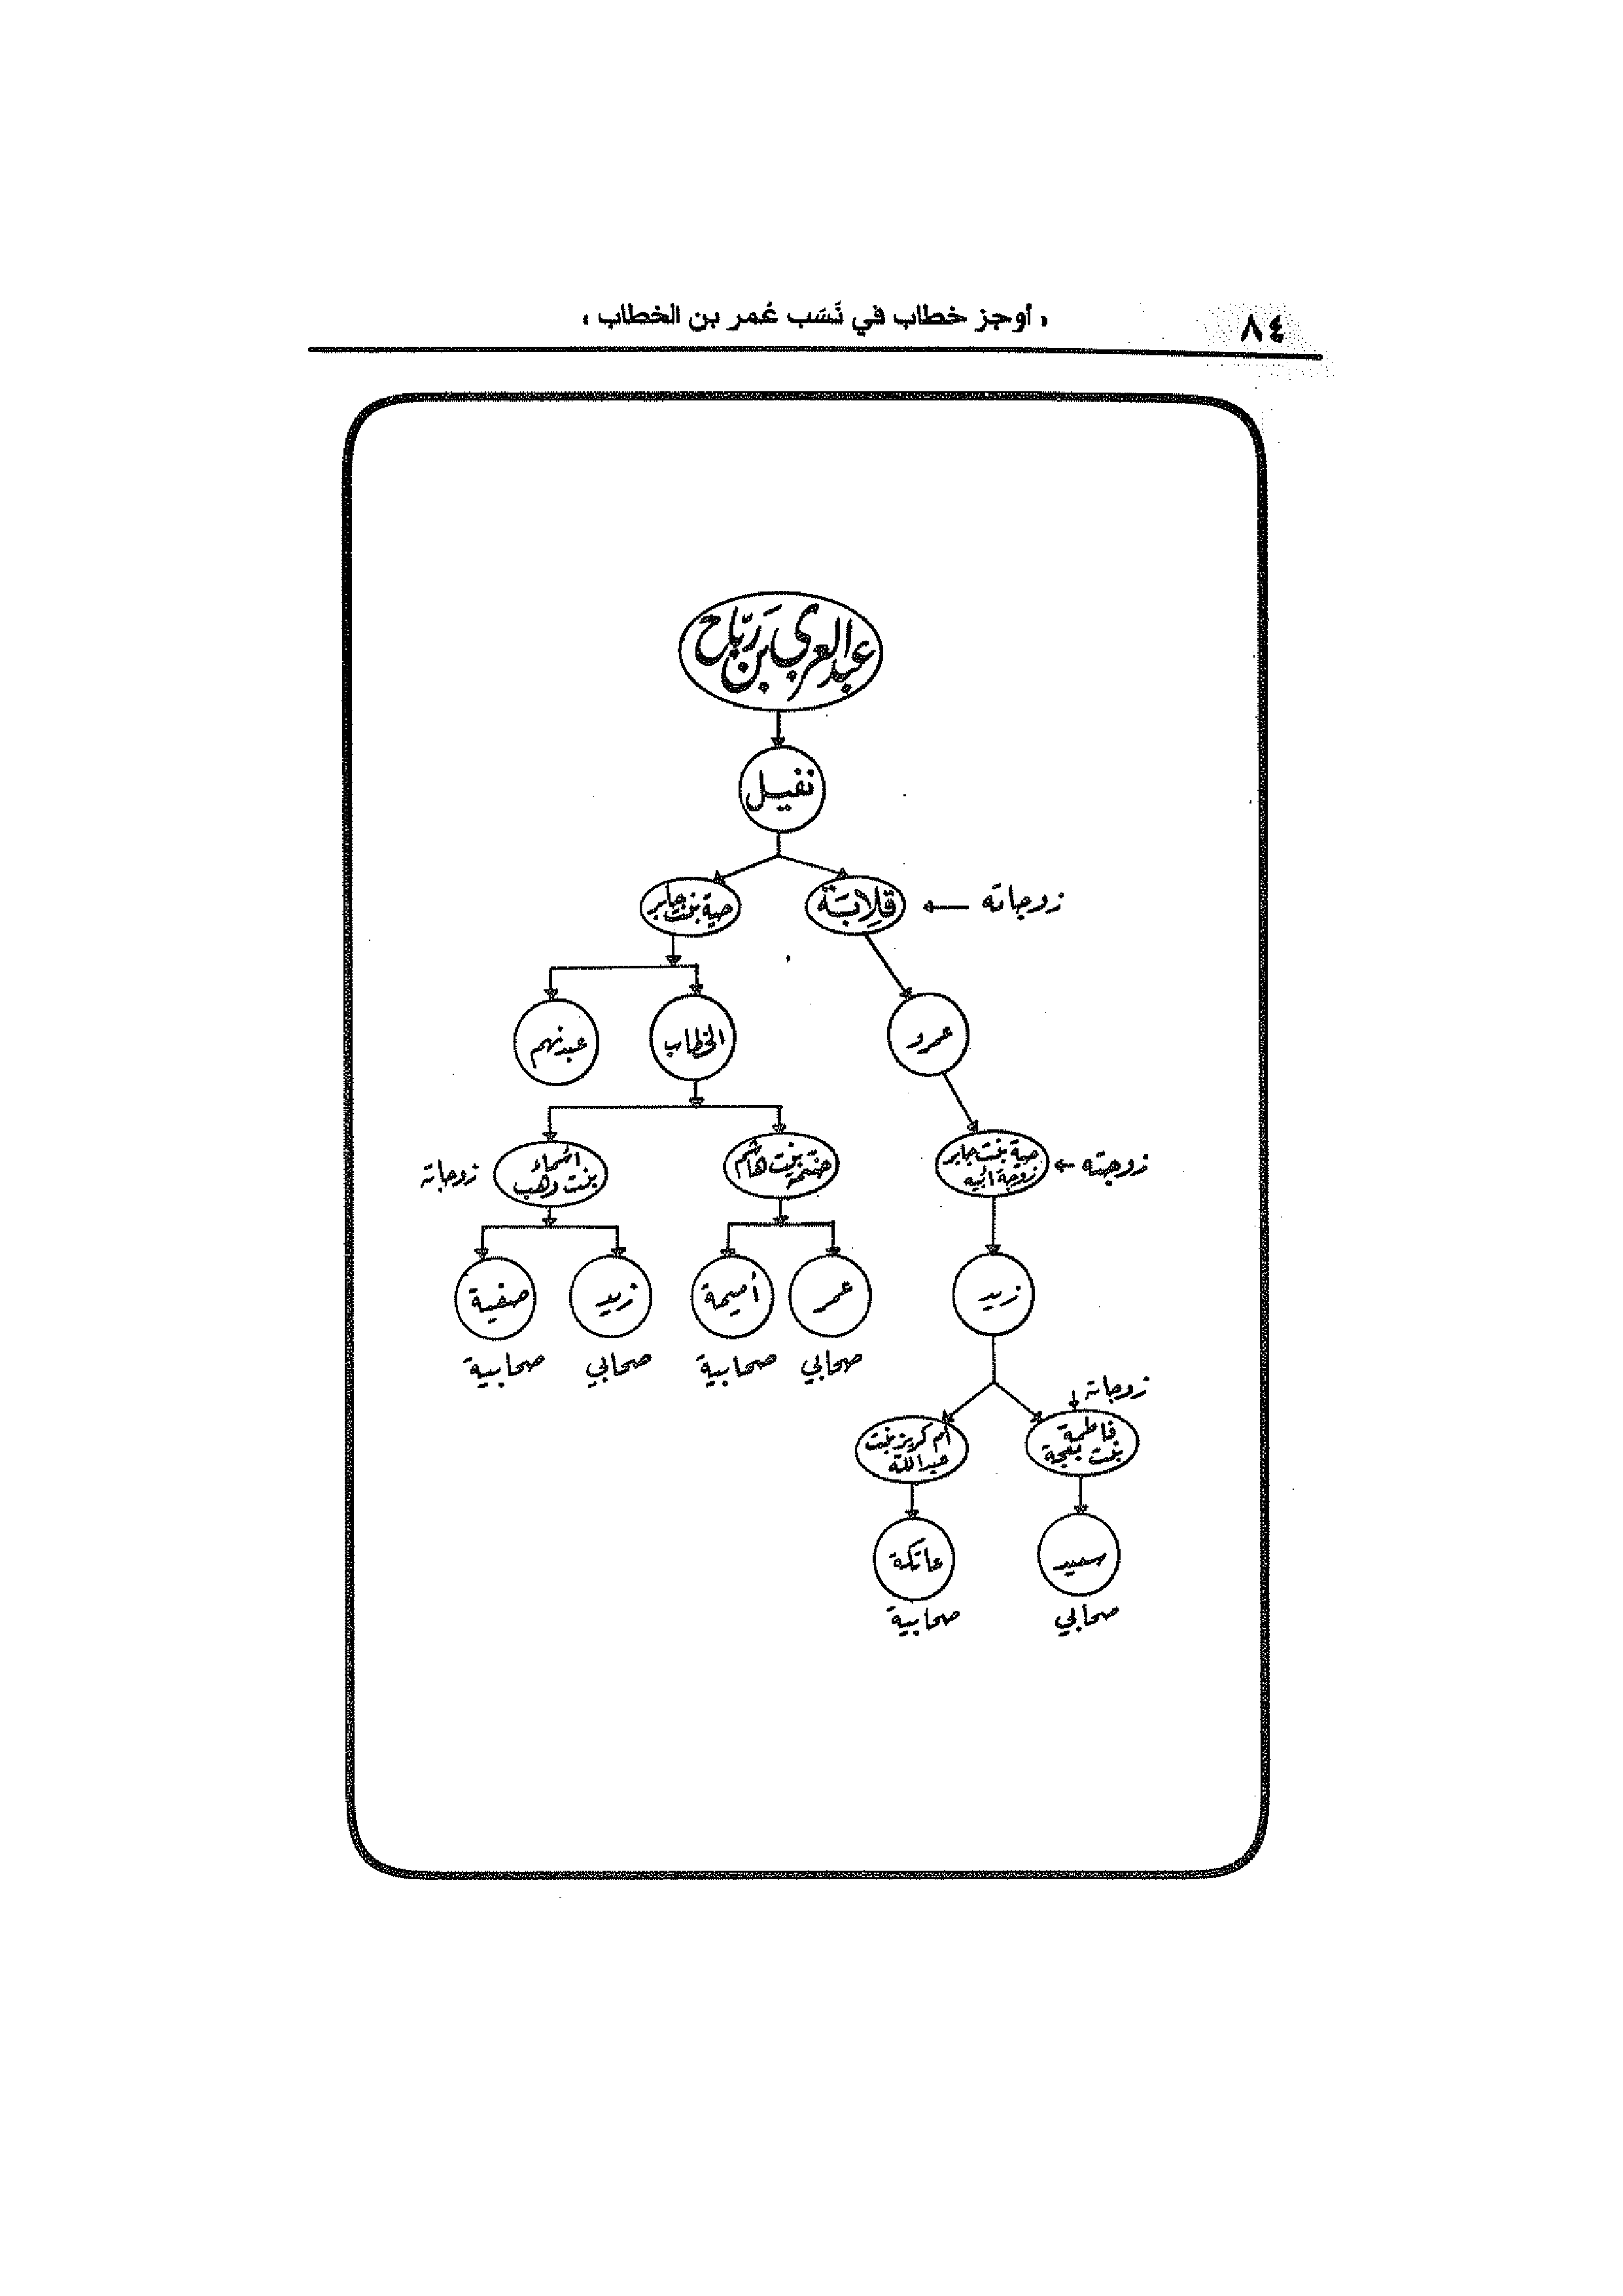 ٨٤
« أوجز خطاب في نَسَب عُمر بن الخطاب »
عبدالعزي بن ربّاح
نفيل
زوجاته
قِلابَة
حية بنت جابر
عمرو
الخطاب
عبدنهم
زوجته
حية بنت جابر
زوجة أبيه
حنتمة بنت هاشم
اسماء
بنت وهب
زوجاته
زيد
عمر
أميمة
زيد
صفية
صحابي
صحابية
صحابي
صحابية
زوجاته
فاطمة
بنت بعجة
أم كريز بنت
عبدالله
سعيد
عاتكة
صحابي
صحابية